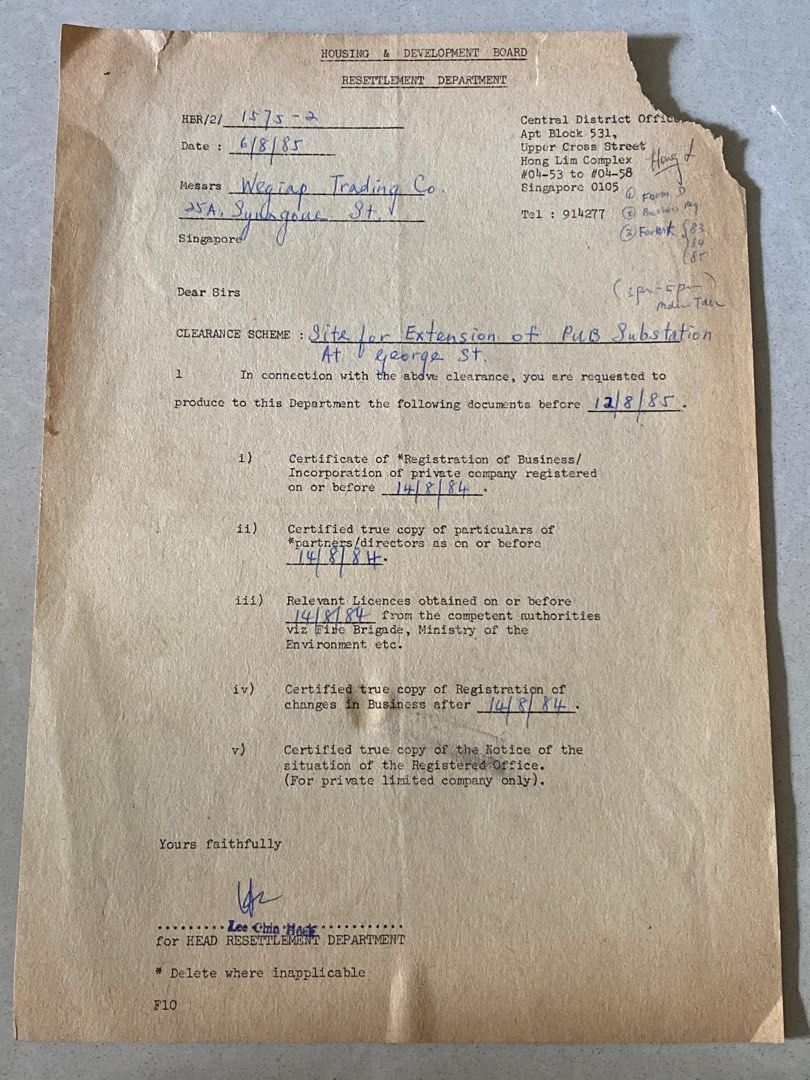 HOUSING & DEVELOPMENT BOARD
RESETTLEMENT DEPARTMENT
HBR/2/ 1575-2
Date : 6/8/85
Messrs Wegiap Trading Co.
25A, Synagoue St.
Singapore
Central District Office
Apt Block 531,
Upper Cross Street
Hong Lim Complex
#04-53 to #04-58
Singapore 0105
Tel : 914277
Hong L
① Form D
② Business Reg.
③ 83
84
85
Dear Sirs
CLEARANCE SCHEME : Site for Extension of PUB Substation
At George St.
1 In connection with the above clearance, you are requested to
produce to this Department the following documents before 12/8/85.
i) Certificate of *Registration of Business/
Incorporation of private company registered
on or before 14/8/84.
ii) Certified true copy of particulars of
*partners/directors as on or before
14/8/84.
iii) Relevant Licences obtained on or before
14/8/84 from the competent authorities
viz Fire Brigade, Ministry of the
Environment etc.
iv) Certified true copy of Registration of
changes in Business after 14/8/84.
v) Certified true copy of the Notice of the
situation of the Registered Office.
(For private limited company only).
Yours faithfully
Lee Chin Hock
for HEAD RESETTLEMENT DEPARTMENT
* Delete where inapplicable
F10